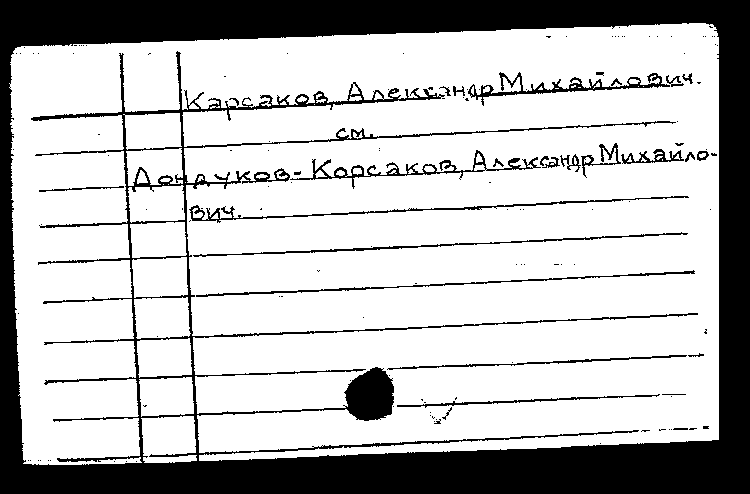 Карсаков, Александр Михайлович.
см.
Дондуков-Корсаков, Александр Михайло-
вич.